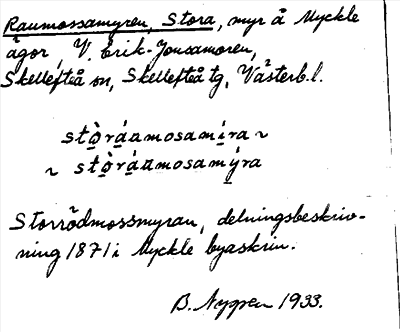 Raumossamyren, Stora, myr å Myckle
ägor, V. Erik-Jonsamoren,
Skellefteå sn, Skellefteå tg, Västerb.l.
stò̱rá̱amosamí̱ra ~
~ stò̱rá̱amosamý̱ra
Storrödmossmyran, delningsbeskriv-
ning 1871 i Myckle byaskrin.
B. Nygren 1933.